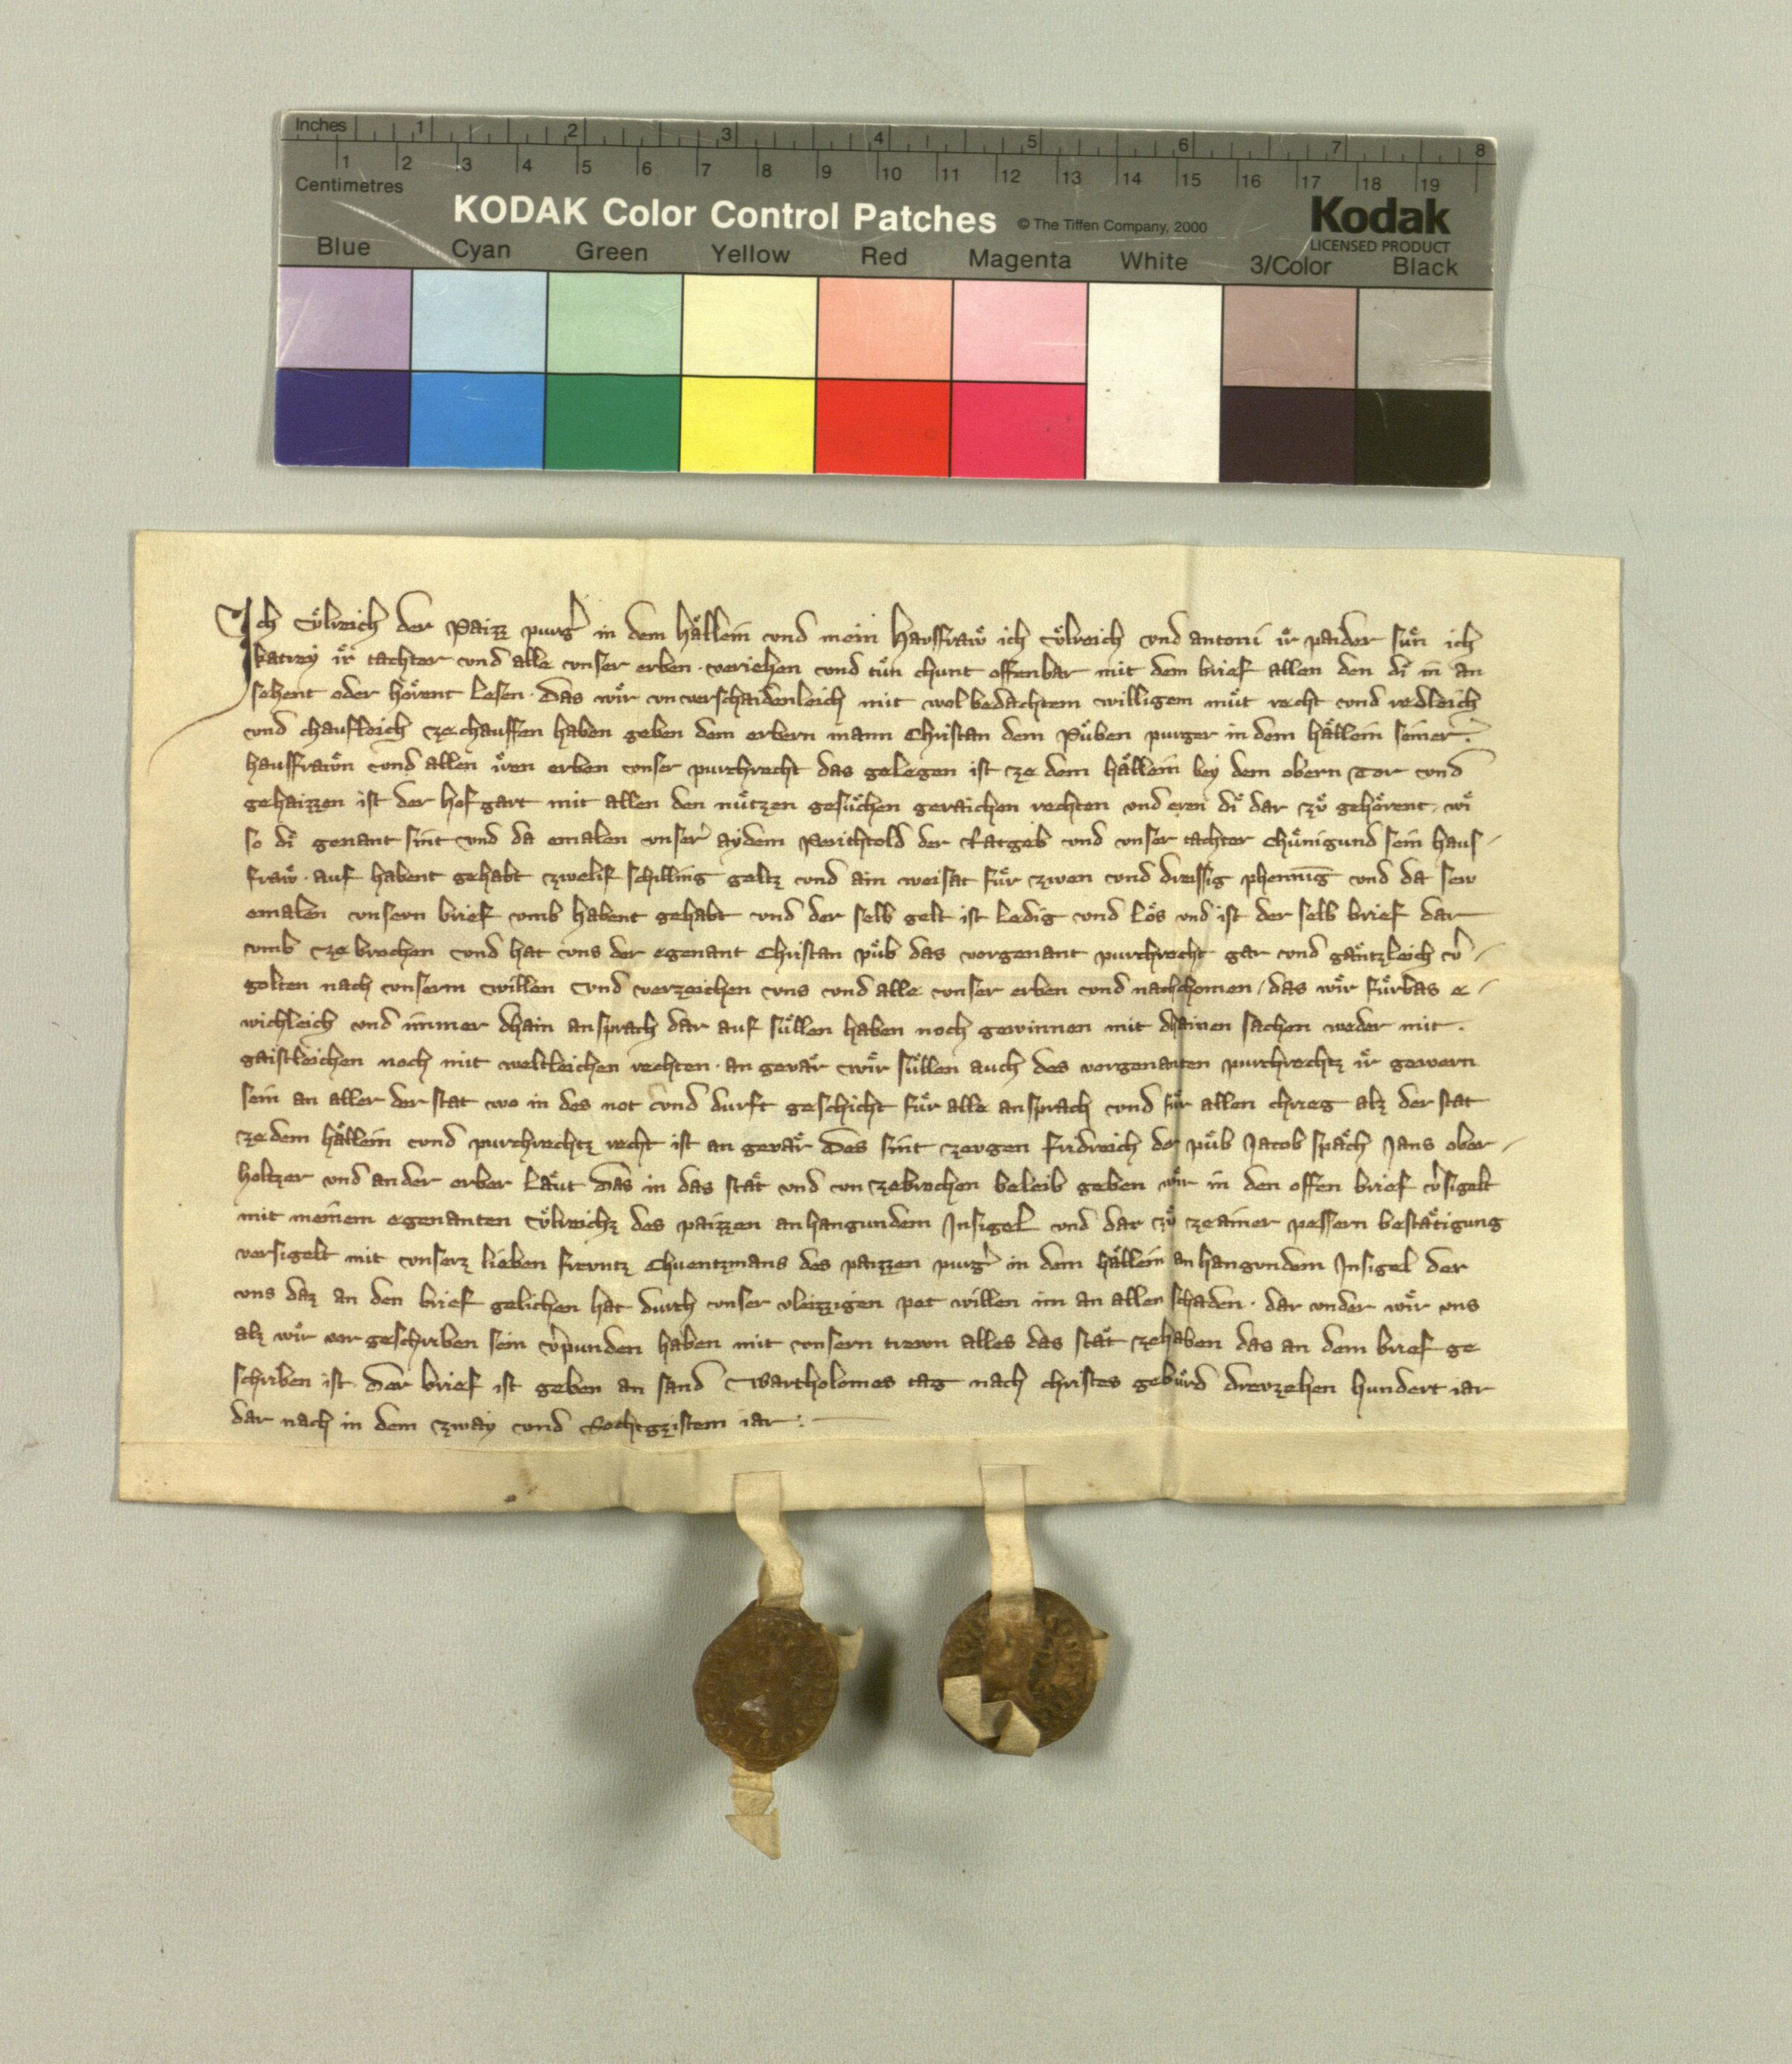 Inches 1 2 3 4 5 6 7 8
1 2 3 4 5 6 7 8 9 10 11 12 13 14 15 16 17 18 19
Centimetres
KODAK Color Control Patches © The Tiffen Company, 2000 Kodak
LICENSED PRODUCT
Blue Cyan Green Yellow Red Magenta White 3/Color Black
Ich Vͤlreich der Paizz purg̉ in dem Haͤllein vnd mein Hausfraẘ ich Vͤlreich vnd antoni iͤr paider suͤn ich
katrey iͤr tachter vnd alle vnser erben · veriehen vnd tuͤn chunt offenbar mit dem brief allen den di in an
sehent oder hoͤrent lesen · das wiͤr vn verschaidenleich mit wolbedachtem willigem muͤt recht vnd redleich
vnd chaufleich ze chauffen haben geben dem erbern mann Christan dem Puͤben purger in dem Haͤllein seiner
hausfrawͤn vnd allen iͤren erben vnser purchrecht das gelegen ist ze dem Haͤllein bey dem obern Tor vnd
gehaizzen ist der Hofgart mit allen den nuͤtzen gesuͤchen geraichen rechten vnd eren diͤ dar zuͤ gehoͤrent · wiͤ
so diͤ genant sint vnd da emalen vnser aydem Perichtold der Ratgeb vnd vnser tachter Chuͤnigund sein haus /
fraẘ · auf habent gehabt zwelif schilling geltz vnd ain weisat fuͤr zwen vnd dreissig phenning vnd da sew
emalen vnsern brief vmb habent gehabt vnd der selb gelt ist ledig vnd loͤs vnd ist der selb brief dar
vmb ze brochen vnd hat vns der egenant Christan puͤb das vorgenant purchrecht gar vnd gaͤntzleich v̉ /
golten nach vnserm willen Vnd verzeichen vns vnd alle vnser erben vnd nachchomen / das wiͤr fuͤrbas e /
wichleich vnd immer dhain ansprach dar auf suͤllen haben noch gewinnen mit dhainen sachen weder mit
gaistleichen noch mit weltleichen rechten · an geuaͤr Wiͤr suͤllen auch des vorgenanten purchrechtz iͤr gewern
sein an aller der stat wo in des not vnd durft geschicht fuͤr alle ansprach vnd fuͤr allen chrieg alz der stat
ze dem Haͤllein vnd purchrechtz recht ist an geuaͤr Des sint zevgen Fridreich der puͤb Jacob spaͤch Jans ober /
holtzer vnd ander erber laͤut Das in das staͤt vnd vn zebrochen beleib geben wiͤr in den offen brief v̉sigelt
mit meinem egenanten Vͤlreichz des paizzen anhangundem Insigel vnd dar zuͤ ze ainer pessern bestaͤtigung
versigelt mit vnserz lieben frevntz Chuentzmans des paizzen purg̉ in dem Haͤllein an hangvndem Insigel der
vns daz an den brief gelichen hat durch vnser vleizzigen pet willen im an allen schaden · dar vnder wiͤr vns
alz wiͤr vor geschriben sein v̉punden haben mit vnsern trewn alles das staͤt ze haben das an dem brief ge
schriben ist Der brief ist geben an sand Wartholomes tag nach christes gebuͤrd drevzehen hundert iar
dar nach in dem zway vnd iar :